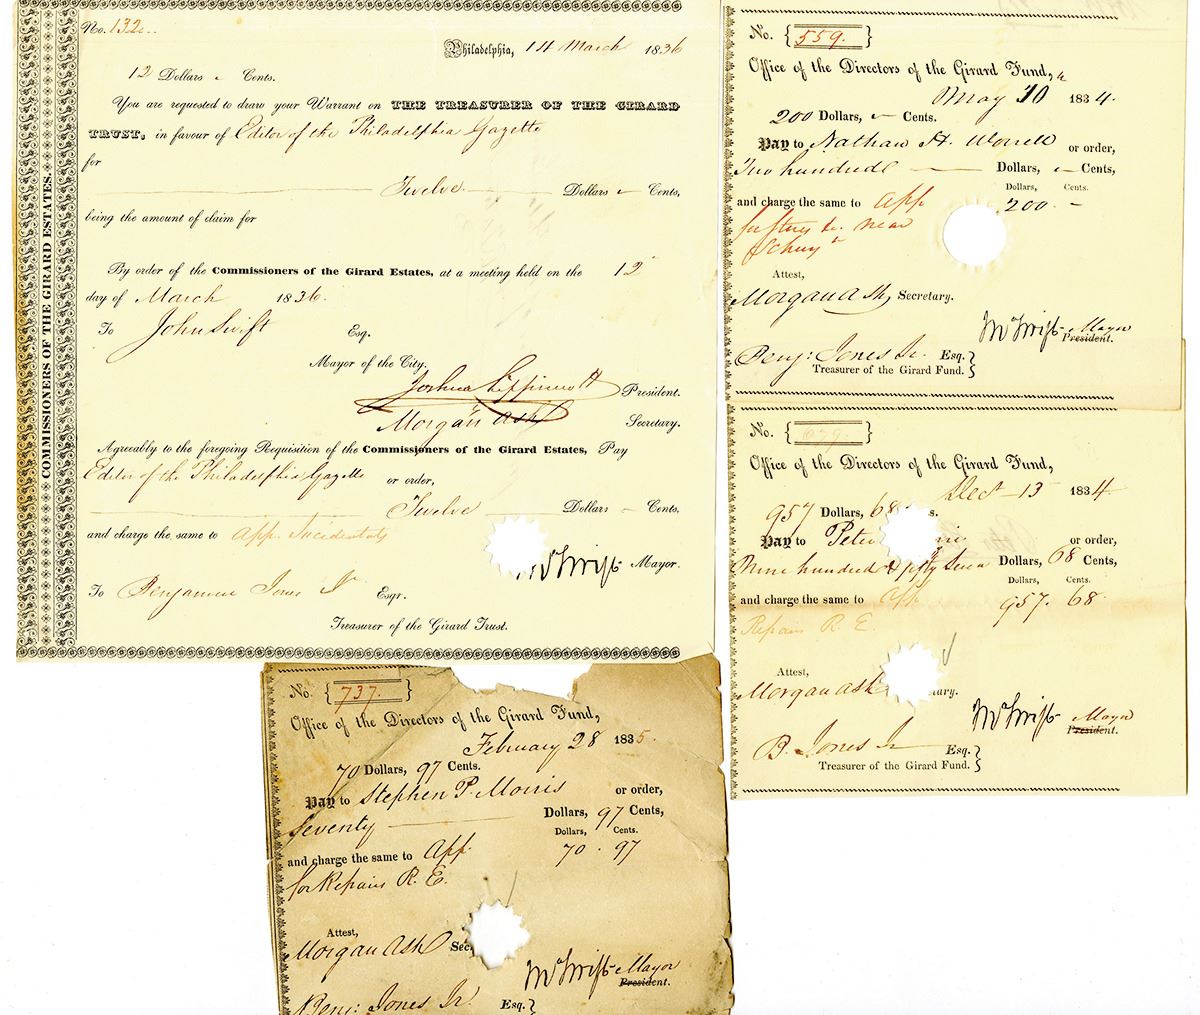 COMMISSIONERS OF THE GIRARD ESTATES.
No. 132
Philadelphia, 14 March 1836
12 Dollars Cents.
You are requested to draw your Warrant on THE TREASURER OF THE GIRARD
TRUST, in favour of Editor of the Philadelphia Gazette
for
Twelve Dollars Cents,
being the amount of claim for
By order of the Commissioners of the Girard Estates, at a meeting held on the 12
day of March 1836.
To John Swift Esq.
Mayor of the City.
Joshua Lippincott President.
Morgan Ash Secretary.
Agreeably to the foregoing Requisition of the Commissioners of the Girard Estates, Pay
Editor of the Philadelphia Gazette or order,
Twelve Dollars Cents.
and charge the same to App. Incidentals
Swift Mayor.
To Benjamin Jones Jr Esqr.
Treasurer of the Girard Trust.
No. 559.
Office of the Directors of the Girard Fund,
May 10 1834.
200 Dollars, Cents.
Pay to Nathan H. Worrell or order,
Two hundred Dollars, Cents,
Dollars, Cents.
and charge the same to App 200 -
near
Attest,
Morgan Ash, Secretary.
Swift Mayor
President.
Benj: Jones Jr. Esq.
Treasurer of the Girard Fund.
No.
Office of the Directors of the Girard Fund,
Dect 13 1834
957 Dollars, 68 s.
Pay to Peter or order,
Nine hundred & fifty Seven Dollars, 68 Cents,
Dollars, Cents.
and charge the same to App 957. 68
Repairs R. E.
Attest,
Morgan Ash tary.
Swift Mayor
President.
B. Jones Jr Esq.
Treasurer of the Girard Fund.
No. 737.
Office of the Directors of the Girard Fund,
February 28 1835.
70 Dollars, 97 Cents.
Pay to Stephen P. Morris or order,
Seventy Dollars, 97 Cents,
Dollars, Cents.
and charge the same to App 70 . 97
for Repairs R. E.
Attest,
Morgan Ash Sec
Swift Mayor
President.
Benj: Jones Jr. Esq.